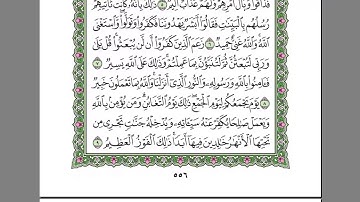 فَذَاقُوا۟ وَبَالَ أَمْرِهِمْ وَلَهُمْ عَذَابٌ أَلِيمٌ ۝٥ ذَٰلِكَ بِأَنَّهُۥ كَانَت تَّأْتِيهِمْ
رُسُلُهُم بِٱلْبَيِّنَٰتِ فَقَالُوٓا۟ أَبَشَرٌ يَهْدُونَنَا فَكَفَرُوا۟ وَتَوَلَّوا۟ وَّٱسْتَغْنَى
ٱللَّهُ وَٱللَّهُ غَنِىٌّ حَمِيدٌ ۝٦ زَعَمَ ٱلَّذِينَ كَفَرُوٓا۟ أَن لَّن يُبْعَثُوا۟ قُلْ بَلَىٰ
وَرَبِّى لَتُبْعَثُنَّ ثُمَّ لَتُنَبَّؤُنَّ بِمَا عَمِلْتُمْ وَذَٰلِكَ عَلَى ٱللَّهِ يَسِيرٌ ۝٧
فَـَٔامِنُوا۟ بِٱللَّهِ وَرَسُولِهِۦ وَٱلنُّورِ ٱلَّذِىٓ أَنزَلْنَا وَٱللَّهُ بِمَا تَعْمَلُونَ خَبِيرٌ
۝٨ يَوْمَ يَجْمَعُكُمْ لِيَوْمِ ٱلْجَمْعِ ذَٰلِكَ يَوْمُ ٱلتَّغَابُنِ وَمَن يُؤْمِنۢ بِٱللَّهِ
وَيَعْمَلْ صَٰلِحًا يُكَفِّرْ عَنْهُ سَيِّـَٔاتِهِۦ وَيُدْخِلْهُ جَنَّٰتٍ تَجْرِى مِن
تَحْتِهَا ٱلْأَنْهَٰرُ خَٰلِدِينَ فِيهَآ أَبَدًا ذَٰلِكَ ٱلْفَوْزُ ٱلْعَظِيمُ ۝٩
٥٥٦